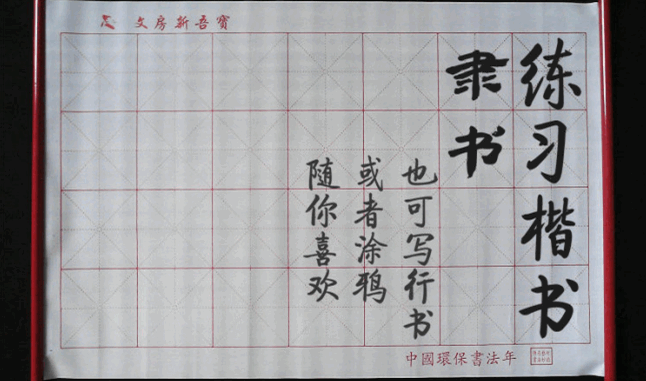 文房新吾寶
练习楷书
隶书
也可写行书
或者涂鸦
随你喜欢
中國環保書法年